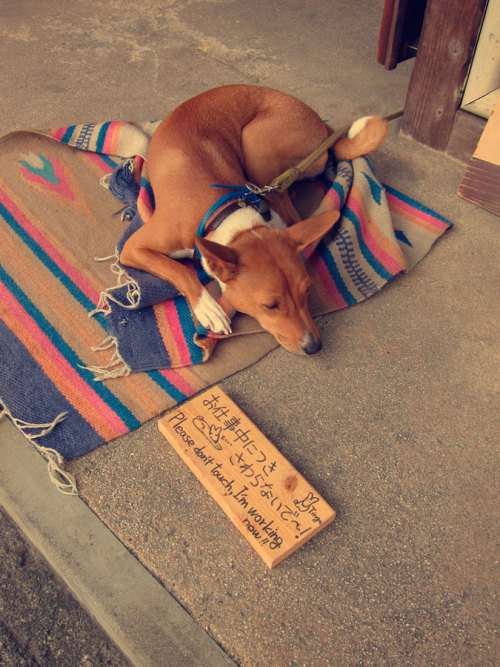 お仕事中につき
さわらないで〜!
Please don't touch, I'm working
now!!